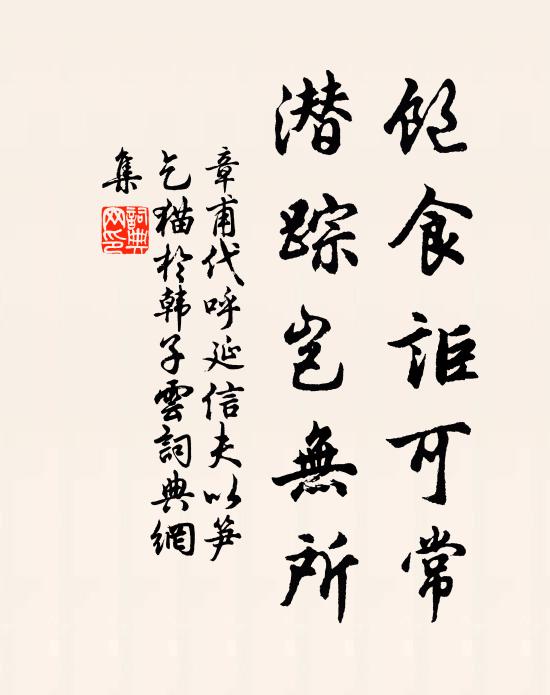 飽食詎可常
潜踪岂無所
章甫代呼延信夫以笋
乞猫於韩子雲詞典網
集
詞典
网印